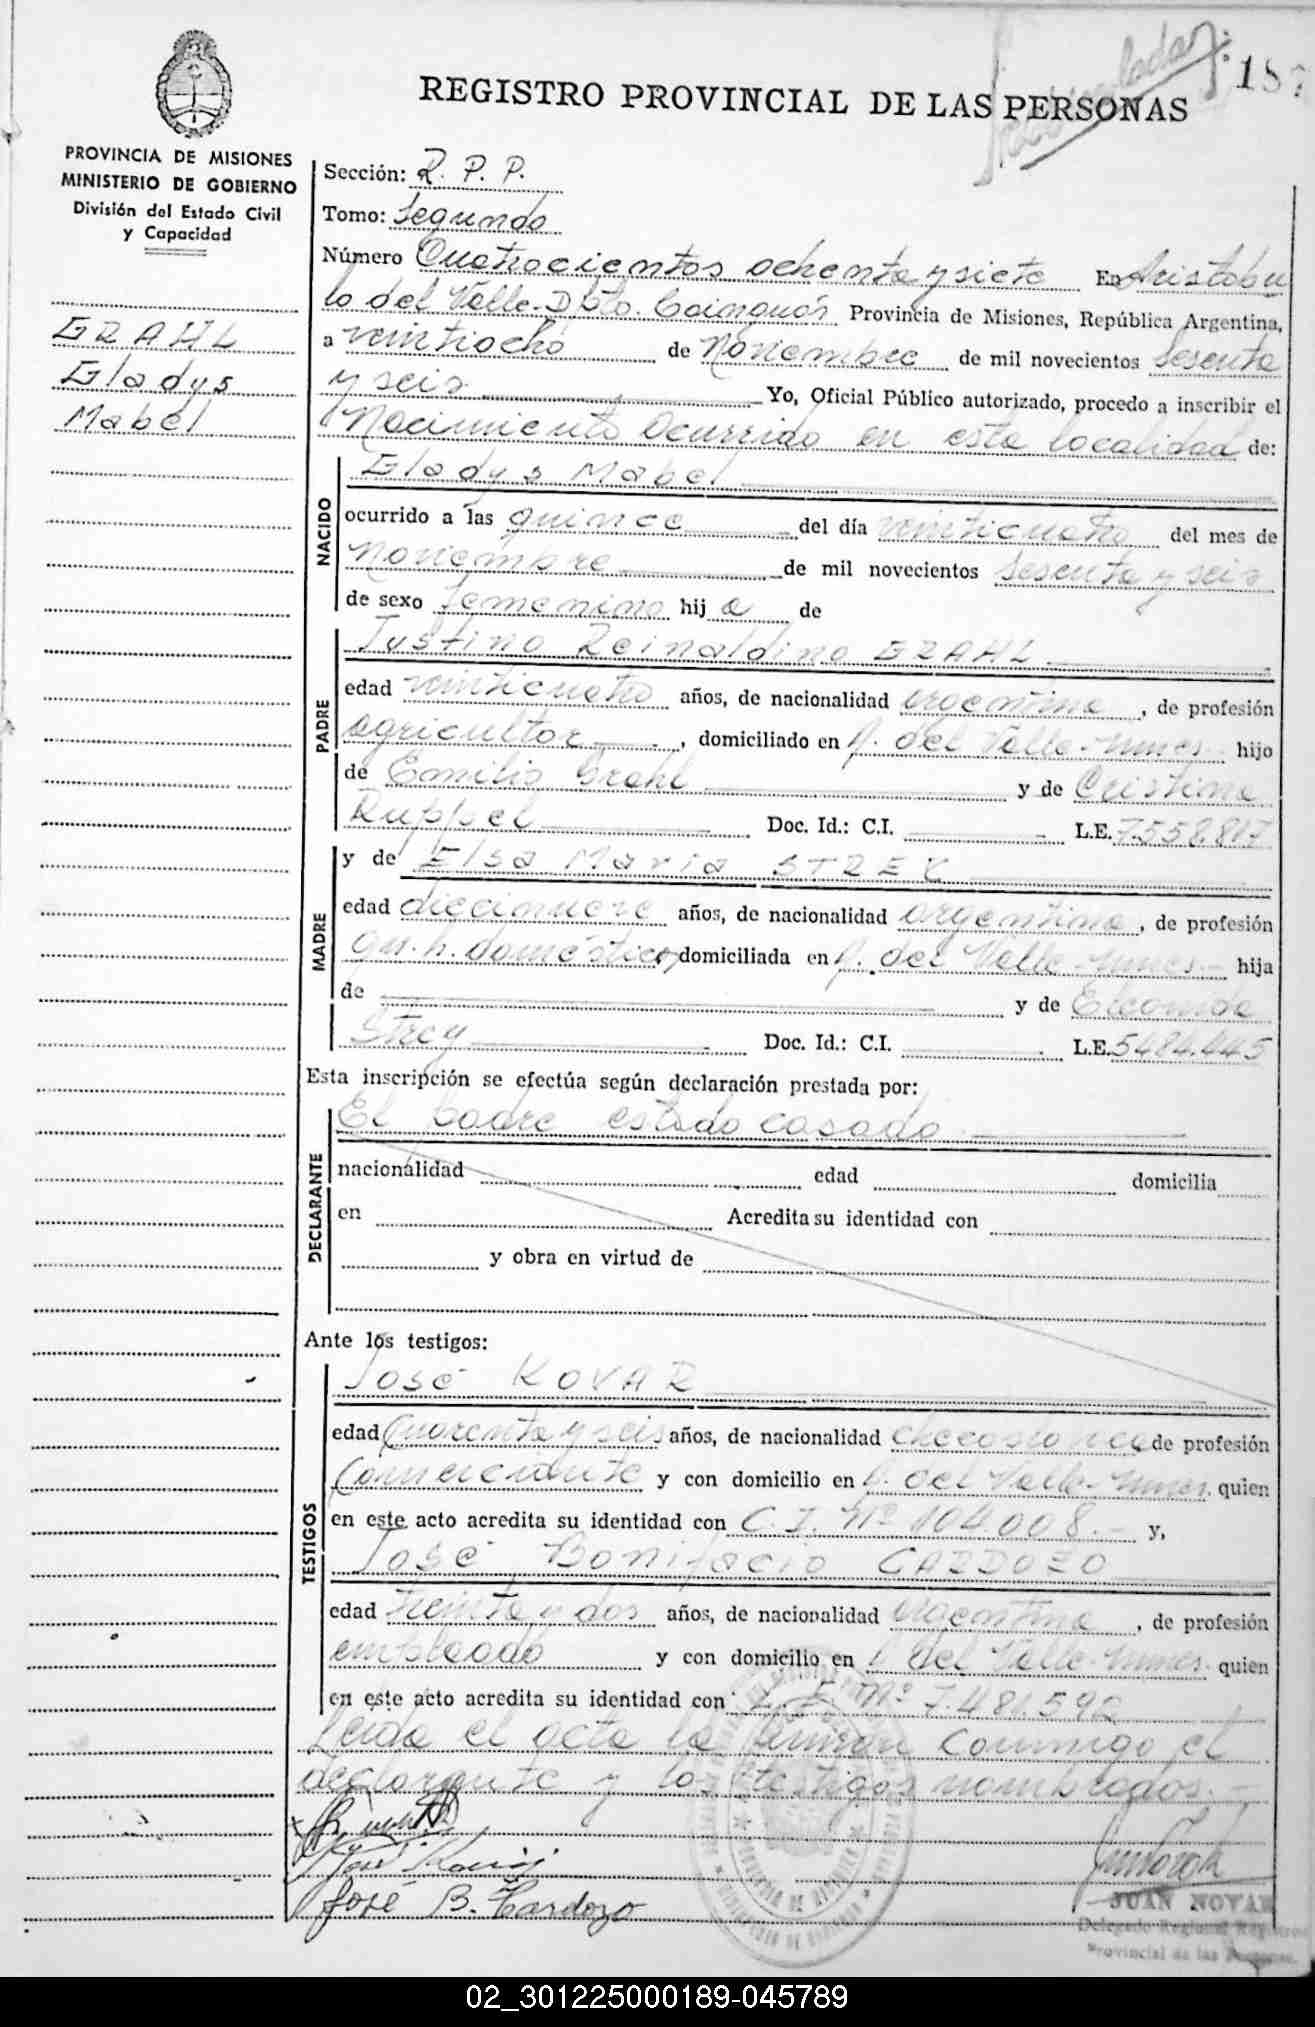 187
REGISTRO PROVINCIAL DE LAS PERSONAS
PROVINCIA DE MISIONES
MINISTERIO DE GOBIERNO
División del Estado Civil
y Capacidad
GRAHL
Gladys
Mabel
Sección: R. P. P.
Tomo: Segundo
Número Cuatrocientos ochenta y siete En Aristóbu
lo del Valle-Dpto. Cainguás Provincia de Misiones, República Argentina,
a veintiocho de Noviembre de mil novecientos sesenta
y seis Yo, Oficial Público autorizado, procedo a inscribir el
Nacimiento ocurrido en esta localidad de:
NACIDO
Gladys Mabel
ocurrido a las quince del día veinticuatro del mes de
noviembre de mil novecientos sesenta y seis
de sexo femenino hij a de
PADRE
Justino Reinaldino GRAHL
edad veinticuatro años, de nacionalidad argentina, de profesión
agricultor, domiciliado en A. del Valle-Mnes. hijo
de Emilio Grahl y de Cristina
Ruppel Doc. Id.: C.I. L.E. 7.558.817
MADRE
y de Elsa María STREY
edad diecinueve años, de nacionalidad argentina, de profesión
qu. h. doméstico, domiciliada en A. del Valle-Mnes.- hija
de y de
Strey Doc. Id.: C.I. L.E. 5484.445
Esta inscripción se efectúa según declaración prestada por:
DECLARANTE
El padre estado casado
nacionalidad edad domicilia
en Acredita su identidad con
y obra en virtud de
Ante los testigos:
TESTIGOS
José KOVAR
edad Cuarenta y seis años, de nacionalidad de profesión
Comerciante y con domicilio en A. del Valle-Mnes. quien
en este acto acredita su identidad con C. I. Nº 104008.- y,
José Bonifacio CARDOZO
edad treinta y dos años, de nacionalidad argentina, de profesión
empleado y con domicilio en A. del Valle-Mnes. quien
en este acto acredita su identidad con L. E. Nº 7.481.592
Leída el acta la firman conmigo el
declarante y los testigos nombrados.-
José B. Cardozo
JUAN NOVAK
Delegado Regional Registro
Provincial de las Personas
02_301225000189-045789